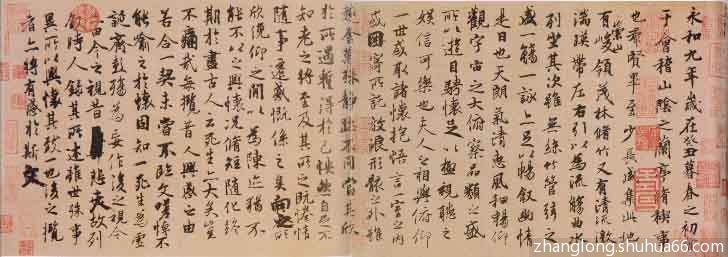 永和九年歲在癸丑暮春之初
于會稽山陰之蘭亭脩稧事
也群賢畢至少長咸集此地
有崇山峻領茂林脩竹又有清流激
湍暎帶左右引以為流觴曲水
列坐其次雖無絲竹管弦之
盛一觴一詠亦足以暢敘幽情
是日也天朗氣清惠風和暢仰
觀宇宙之大俯察品類之盛
所以遊目騁懷足以極視聽之
娛信可樂也夫人之相與俯仰
一世或取諸懷抱悟言一室之內
或因寄所託放浪形骸之外雖
趣舍萬殊靜躁不同當其欣
於所遇暫得於己怏然自足不
知老之將至及其所之既惓情
隨事遷感慨係之矣向之所
欣俛仰之閒以為陳迹猶不
能不以之興懷況脩短隨化終
期於盡古人云死生亦大矣豈
不痛哉每攬昔人興感之由
若合一契未嘗不臨文嗟悼不
能喻之於懷固知一死生為虛
誕齊彭殤為妄作後之視今
亦由今之視昔悲夫故列
敘時人錄其所述雖世殊事
異所以興懷其致一也後之攬
者亦將有感於斯文
zhanglong.shuhua66.com